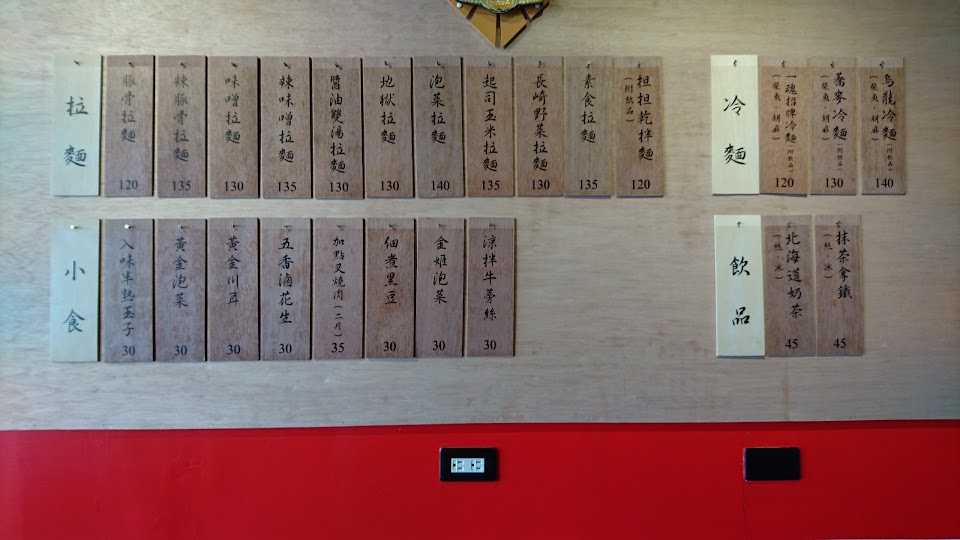 拉麵
豚骨拉麵
120
辣豚骨拉麵
135
味噌拉麵
130
辣味噌拉麵
135
醬油雙湯拉麵
130
地獄拉麵
130
泡菜拉麵
140
起司玉米拉麵
135
長崎野菜拉麵
130
素食拉麵
135
担担乾拌麵
(附飲品)
120
冷麵
一魂招牌冷麵(附飲品)
(柴魚、胡麻)
120
蕎麥冷麵(附飲品)
(柴魚、胡麻)
130
烏龍冷麵(附飲品)
(柴魚、胡麻)
140
小食
入味半熟玉子
30
黃金泡菜
30
黃金川耳
30
五香滷花生
30
加點叉燒肉(二片)
35
佃煮黑豆
30
金姬泡菜
30
涼拌牛蒡絲
30
飲品
北海道奶茶
(熱、冰)
45
抹茶拿鐵
(熱、冰)
45